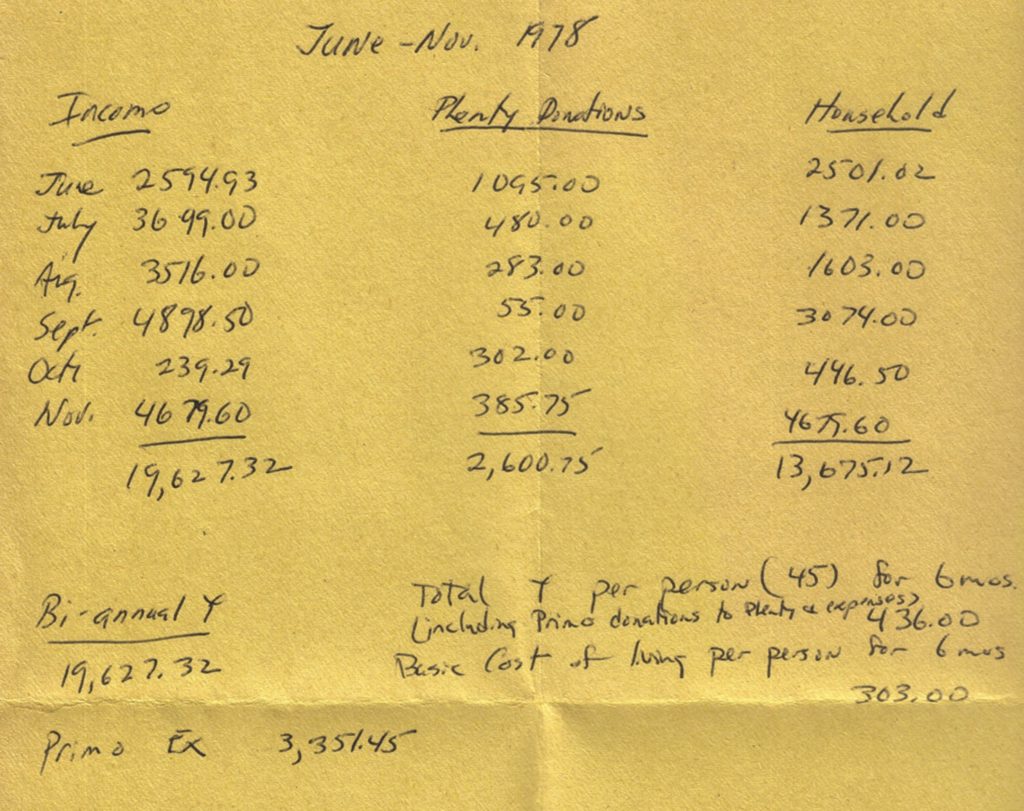 June - Nov. 1978
Income Plenty Donations Household
June 2594.93 1095.00 2501.02
July 3699.00 480.00 1371.00
Aug. 3516.00 283.00 1603.00
Sept. 4898.50 55.00 3074.00
Oct. 239.29 302.00 446.50
Nov. 4679.60 385.75 4679.60
19,627.32 2,600.75 13,675.12
Bi-annual Y
19,627.32
Primo Ex 3,351.45
Total Y per person (45) for 6 mos.
(including Primo donations to Plenty & expenses) 436.00
Basic Cost of living per person for 6 mos
303.00